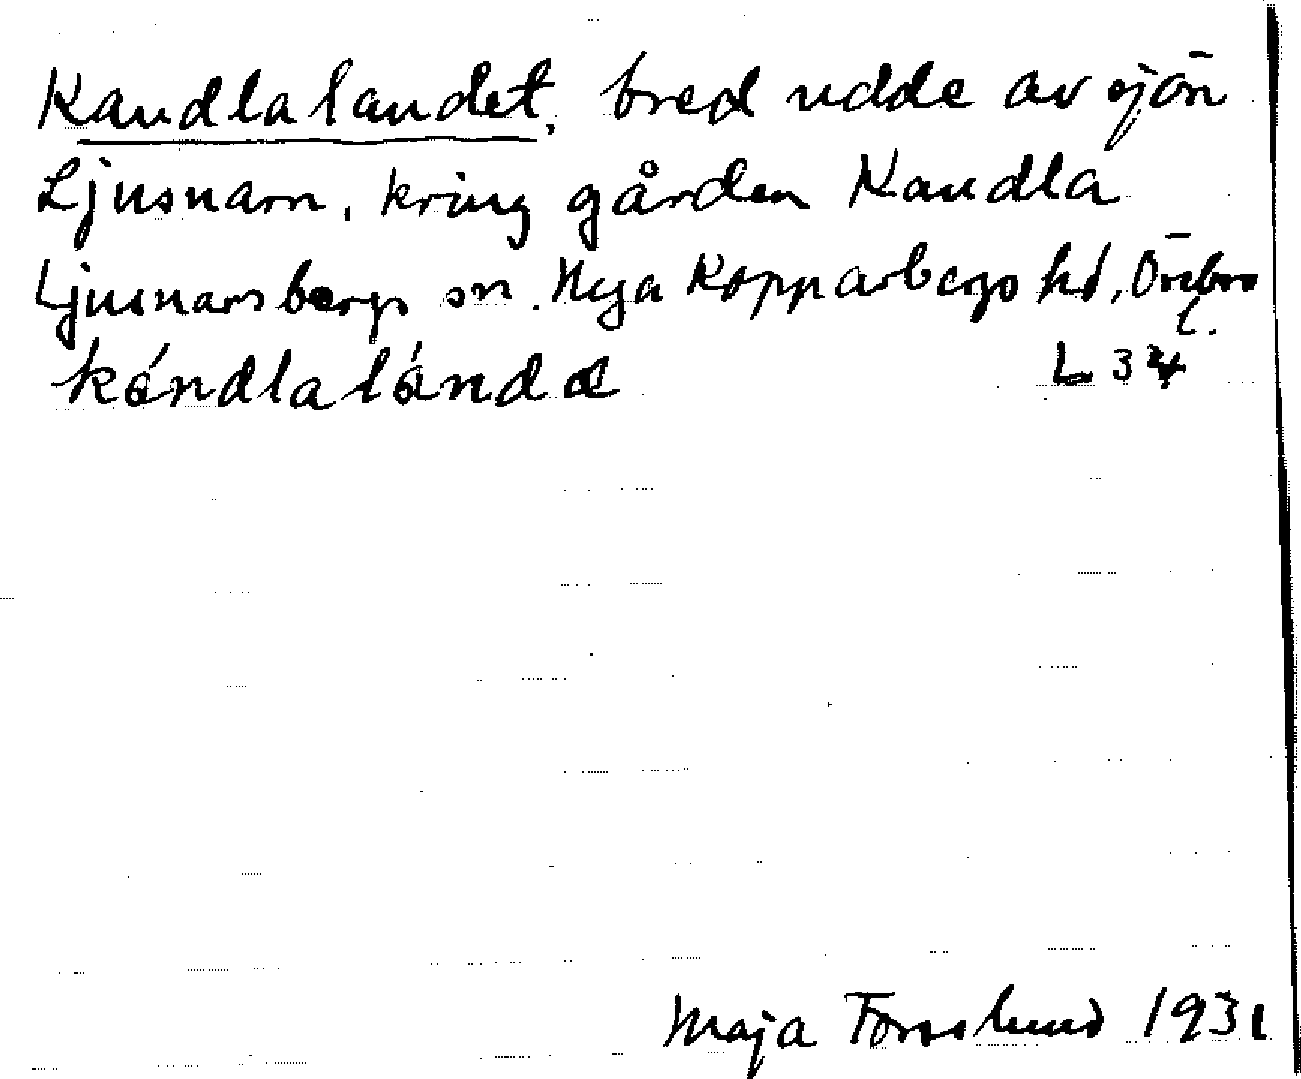 Kandlalandet, bred udde av sjön
Ljusnarn, kring gården Kandla
Ljusnarsbergs sn. Nya Kopparbergs hd, Örebro
l.
kándlalánda
L 34
Maja Forsslund 1931